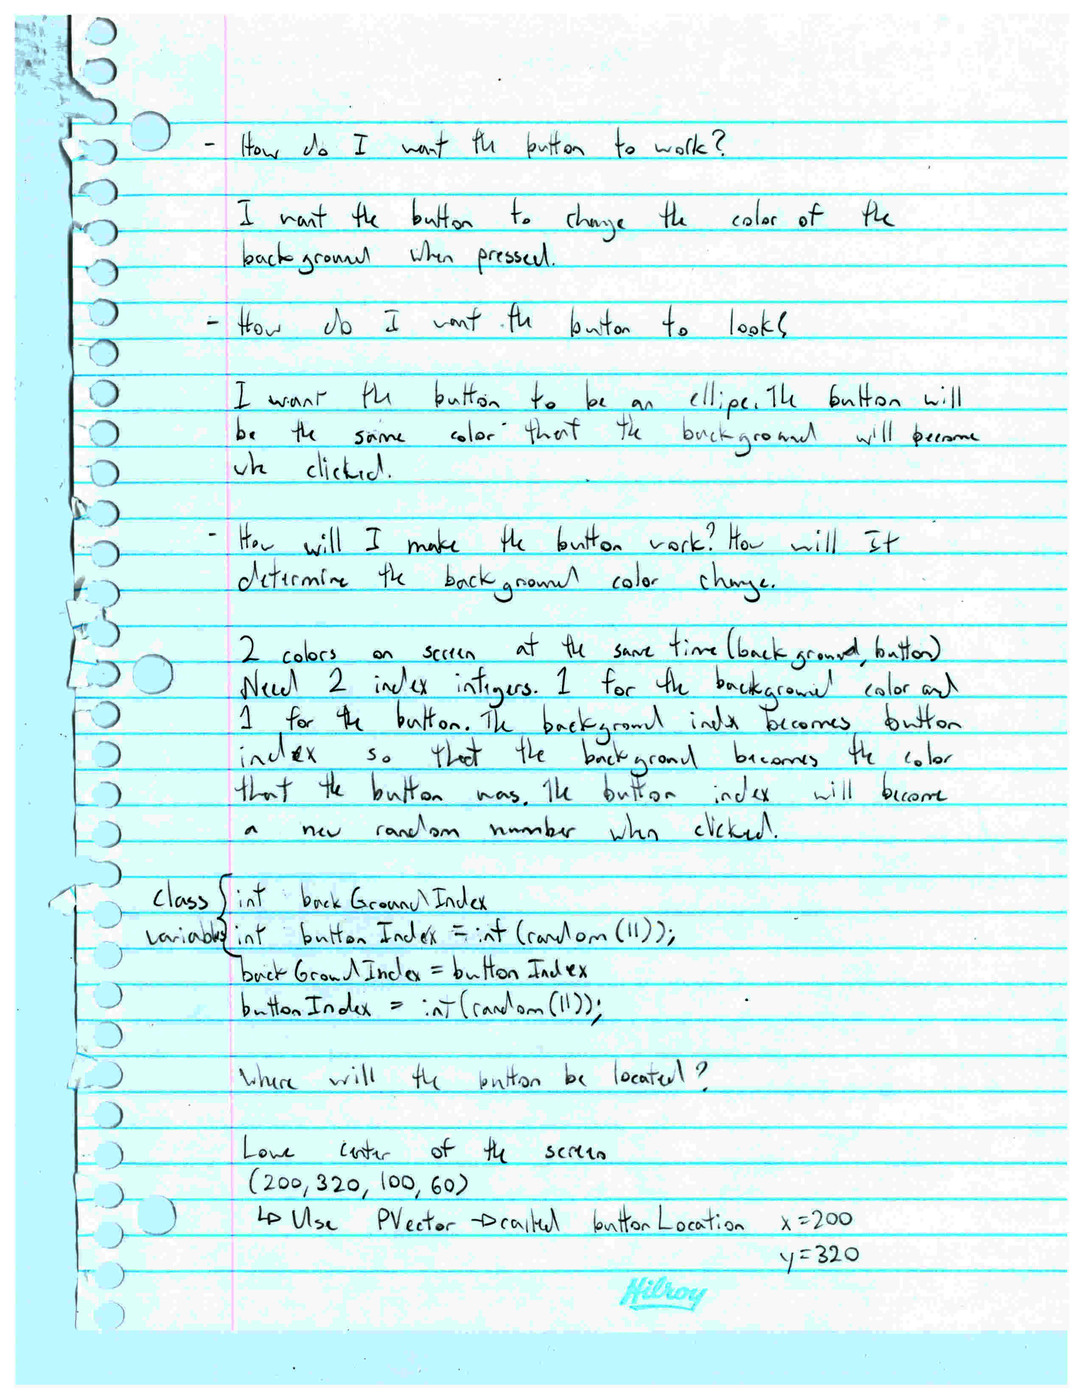 - How do I want the button to work?
I want the button to change the color of the
background when pressed.
- How do I want the button to look?
I want the button to be an ellipe. The button will
be the same color that the background will become
whe clicked.
- How will I make the button work? How will It
determine the background color change.
2 colors on screen at the same time (background, button)
Need 2 index intigers. 1 for the background color and
1 for the button. The background indx becomes button
index so that the background becomes the color
that the button was. The button index will become
a new random number when clicked.
class { int backGroundIndex
variables int buttonIndex = int (random (11));
backGroundIndex = buttonIndex
buttonIndex = int (random (11));
Where will the button be located?
Lowe center of the screen
(200, 320, 100, 60)
↳ Use PVector → called buttonLocation x = 200
y = 320
Hilroy